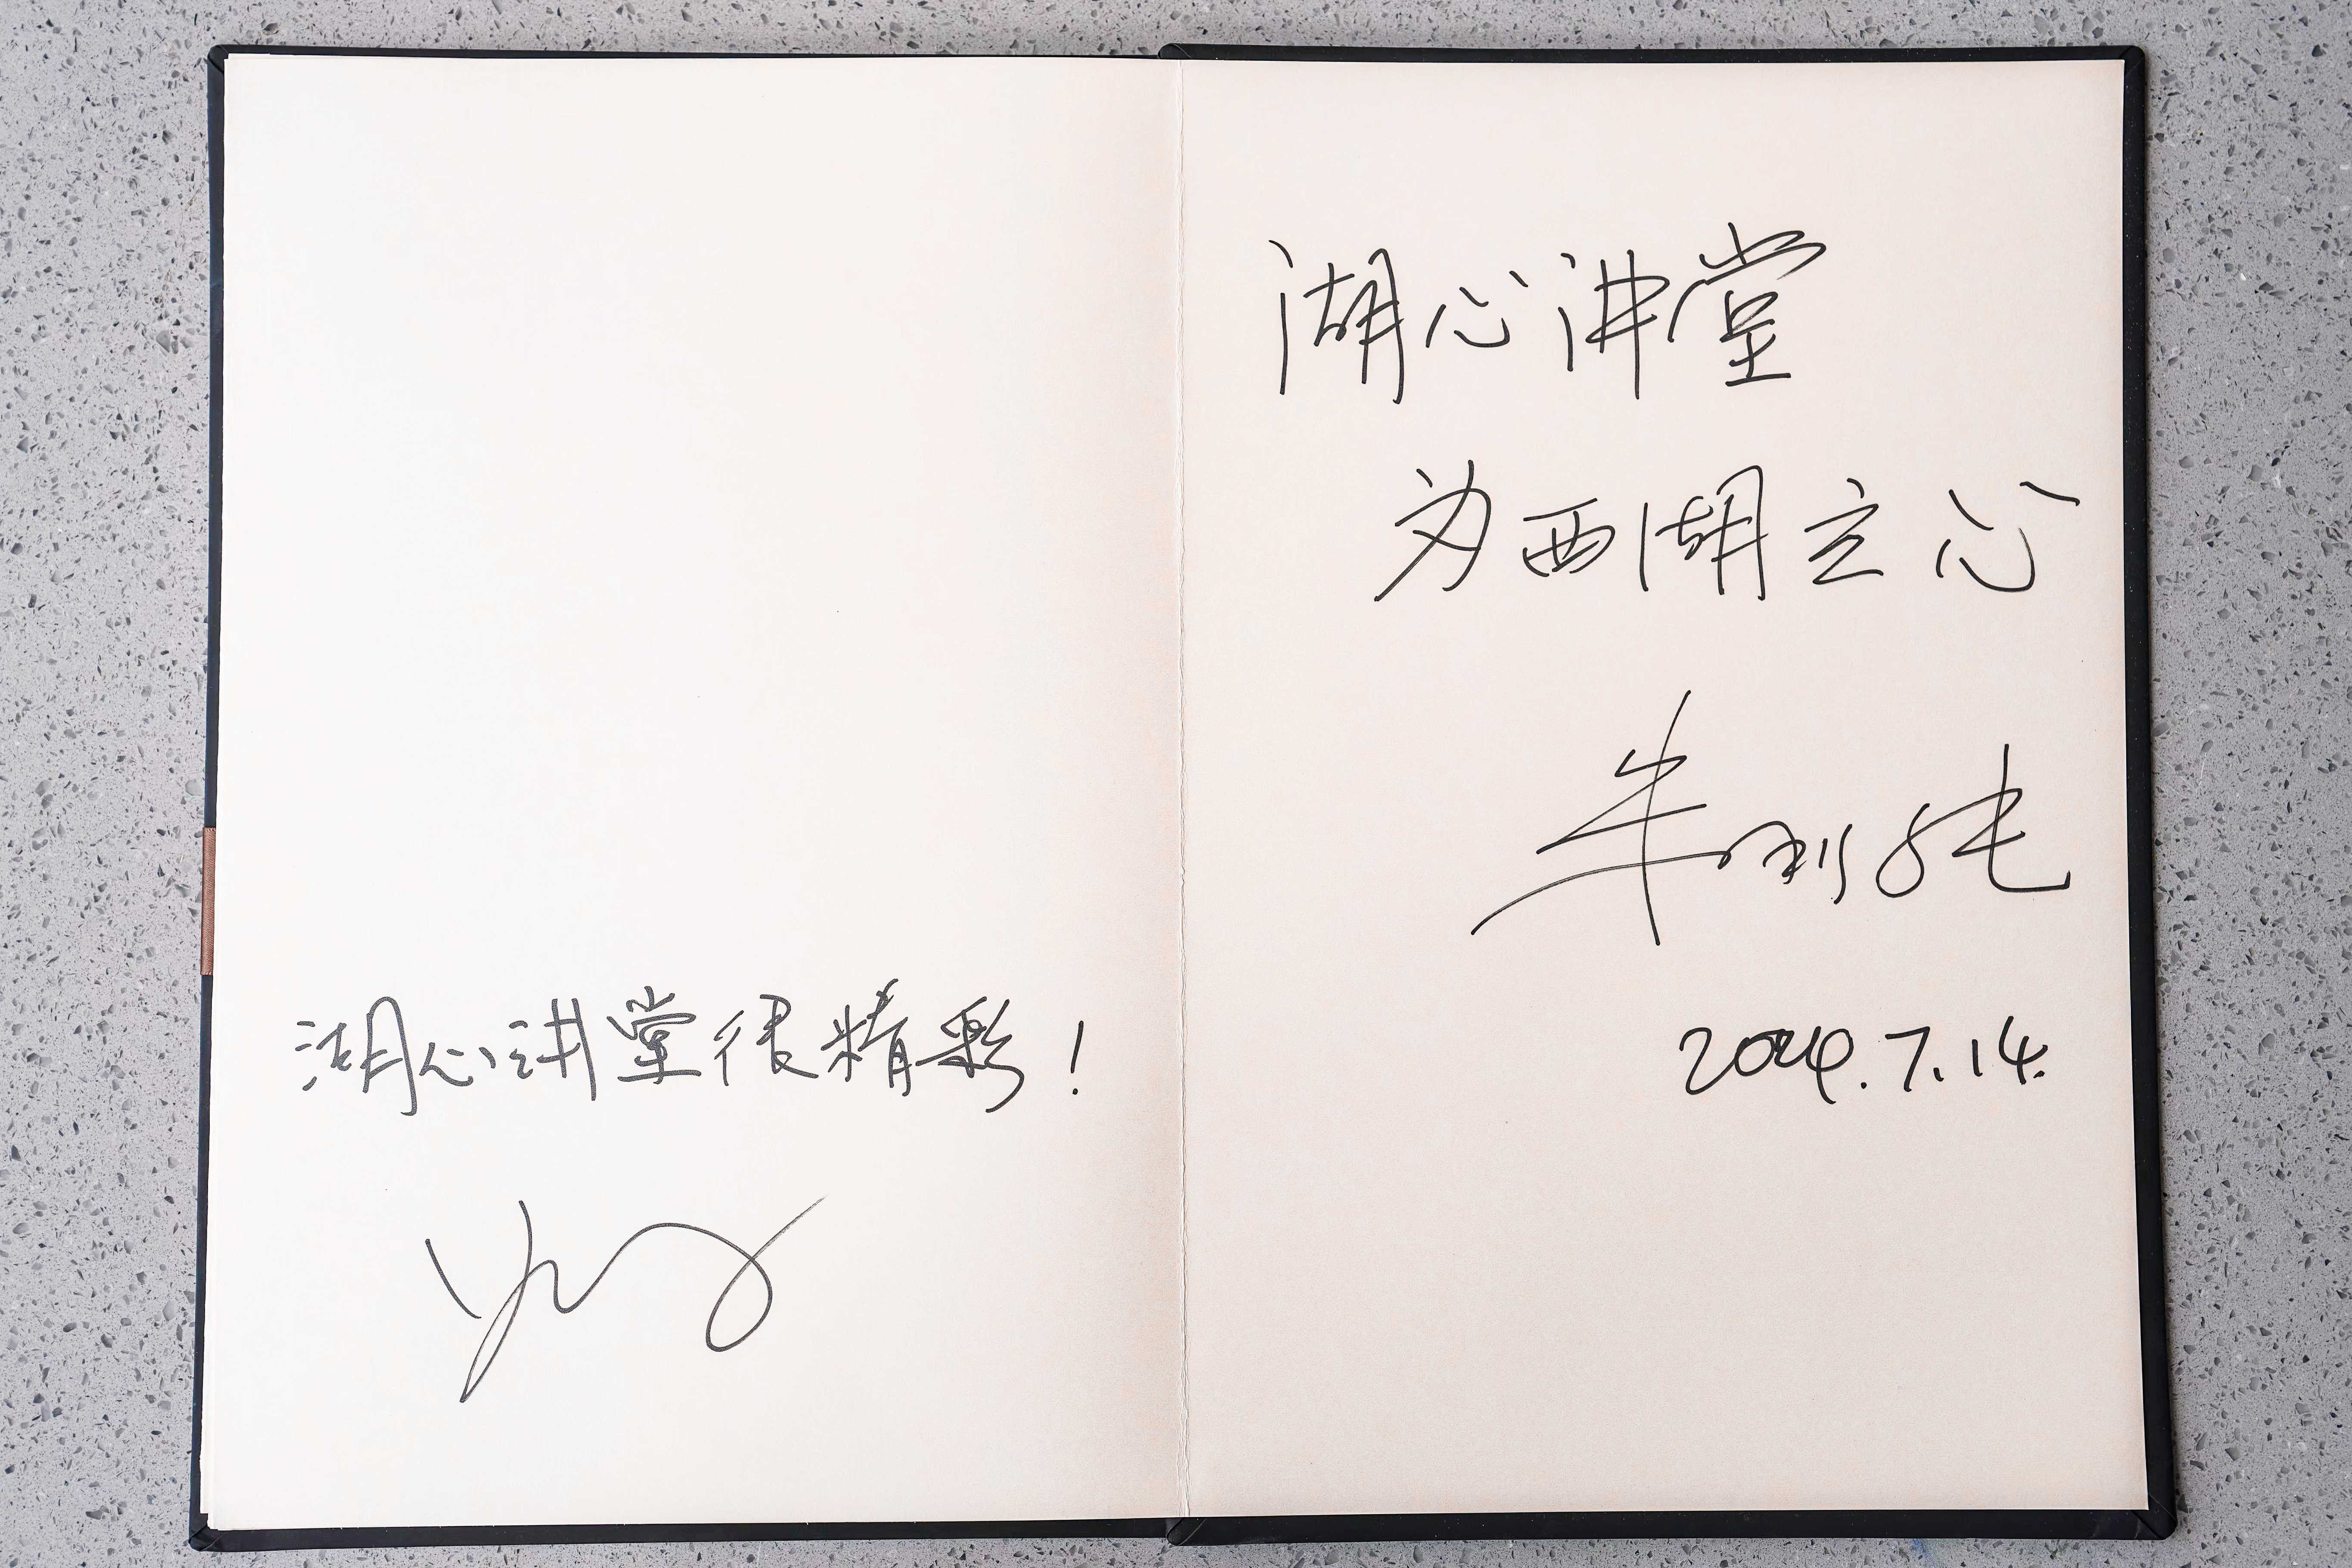 湖心讲堂很精彩！
湖心讲堂
为西湖立心
朱刚
2024.7.14.